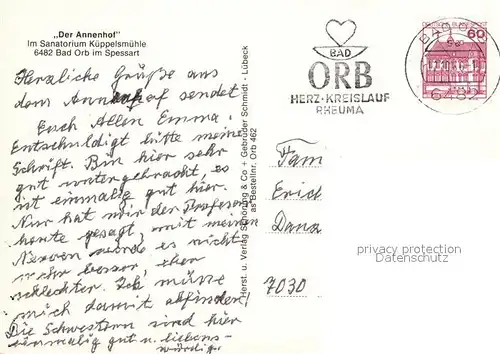 „Der Annenhof"
Im Sanatorium Küppelsmühle
6482 Bad Orb im Spessart
Herzliche Grüße aus
dem Annenhof sendet
Euch Allen Emma.
Entschuldigt bitte meine
Schrift. Bin hier sehr
gut untergebracht, es
ist einmalig gut hier.
Nur hat mir der Professor
heute gesagt, mit meinen
Nerven werde es nicht
mehr besser, eher
schlechter. Ich müsse
mich damit abfinden!
Die Schwestern sind hier
einmalig gut u. liebens-
würdig.
Herst. u. Verlag Schöning & Co + Gebrüder Schmidt - Lübeck
Bestellnr. Orb 462
BAD
ORB
HERZ-KREISLAUF
RHEUMA
BAD ORB
6482
60
Fam
Erich
7030
privacy protection
Datenschutz